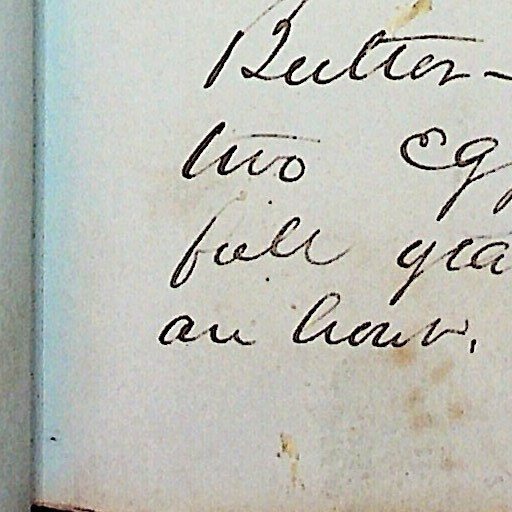 Butter -
two eg
full yea
an hour.